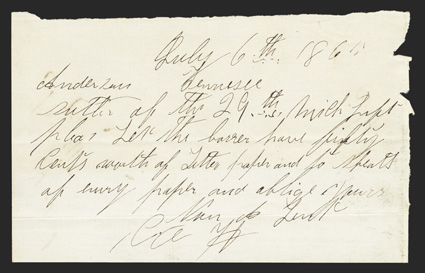 July 6th 1865
Anderson Tennesee
sutler of the 29th, Mich Inft
pleas Let the barer have fifty
Cents worth of Letter paper and 50 sheats
of evry paper and oblige yours
Co